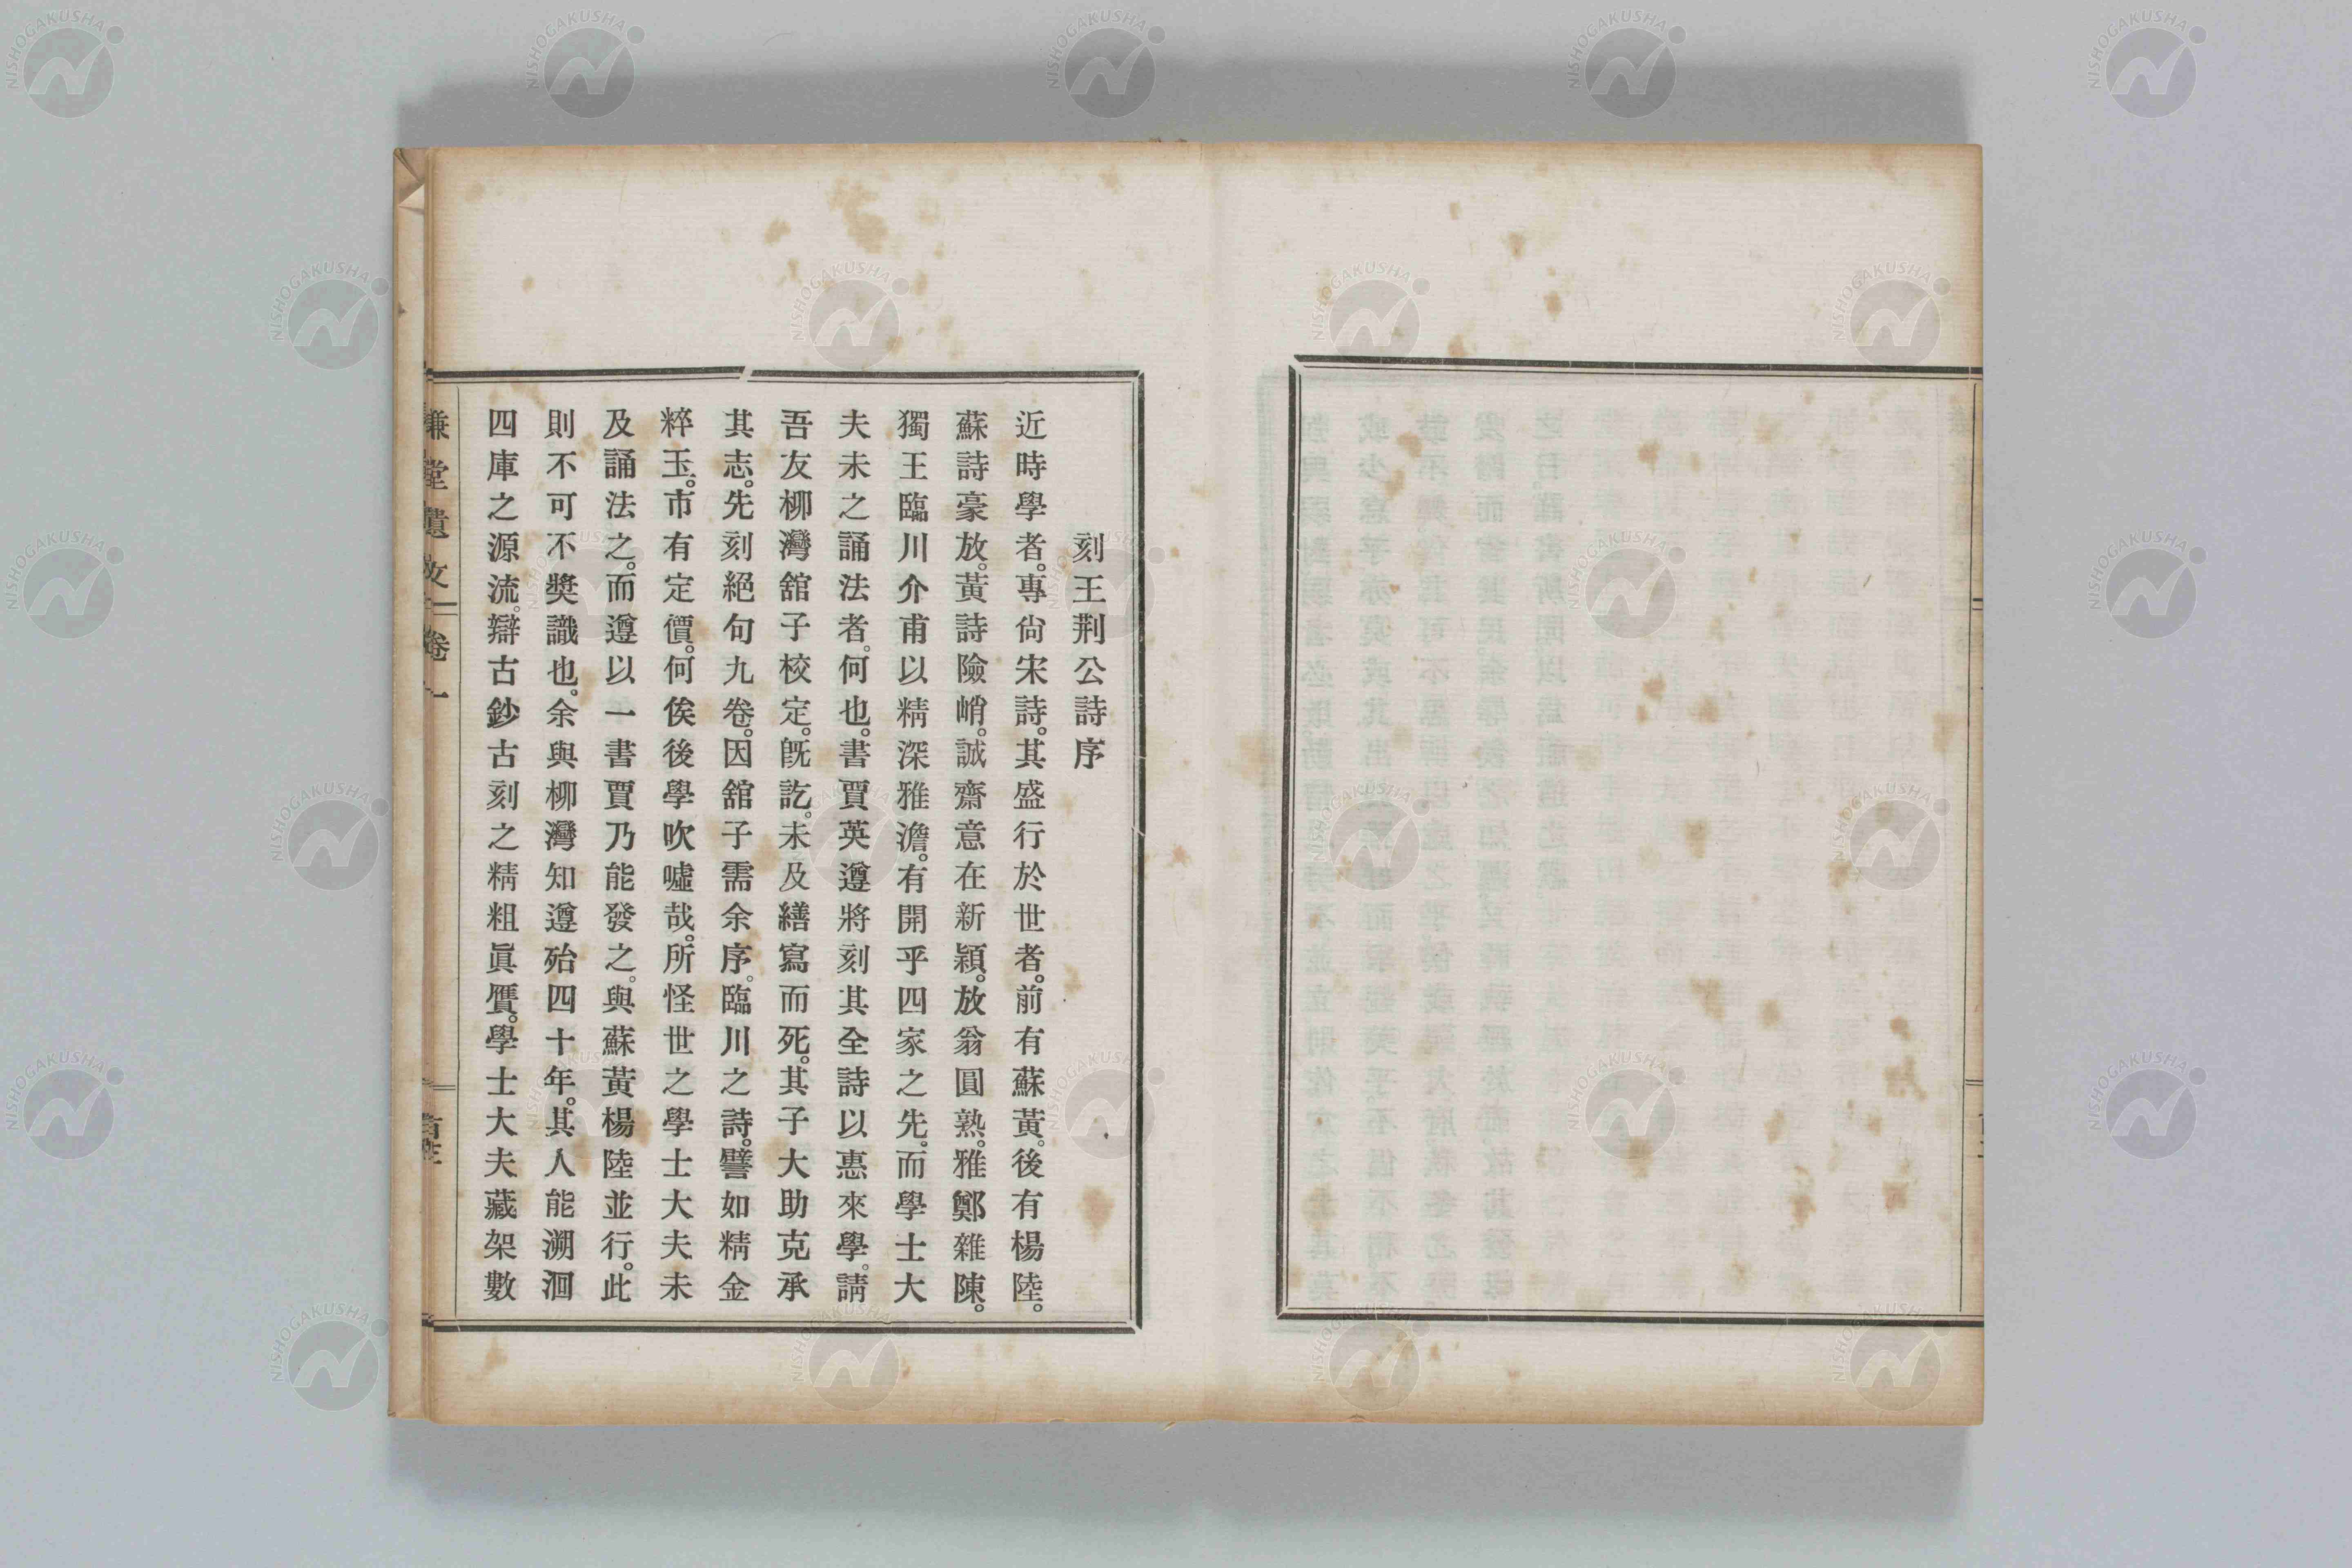 刻王荆公詩序
近時學者。專尙宋詩。其盛行於世者。前有蘇黃。後有楊陸。
蘇詩豪放。黃詩險峭。誠齋意在新穎。放翁圓熟。雅鄭雜陳。
獨王臨川介甫以精深雅澹。有開乎四家之先。而學士大
夫未之誦法者。何也。書賈英遵將刻其全詩以惠來學。請
吾友柳灣舘子校定。旣訖。未及繕寫而死。其子大助克承
其志。先刻絕句九卷。因舘子需余序。臨川之詩。譬如精金
粹玉。市有定價。何俟後學吹噓哉。所怪世之學士大夫未
及誦法之。而遵以一書賈乃能發之。與蘇黃楊陸並行。此
則不可不奬識也。余與柳灣知遵殆四十年。其人能溯洄
四庫之源流。辯古鈔古刻之精粗眞贋。學士大夫藏架數
慊堂遺文 卷一
NISHOGAKUSHA